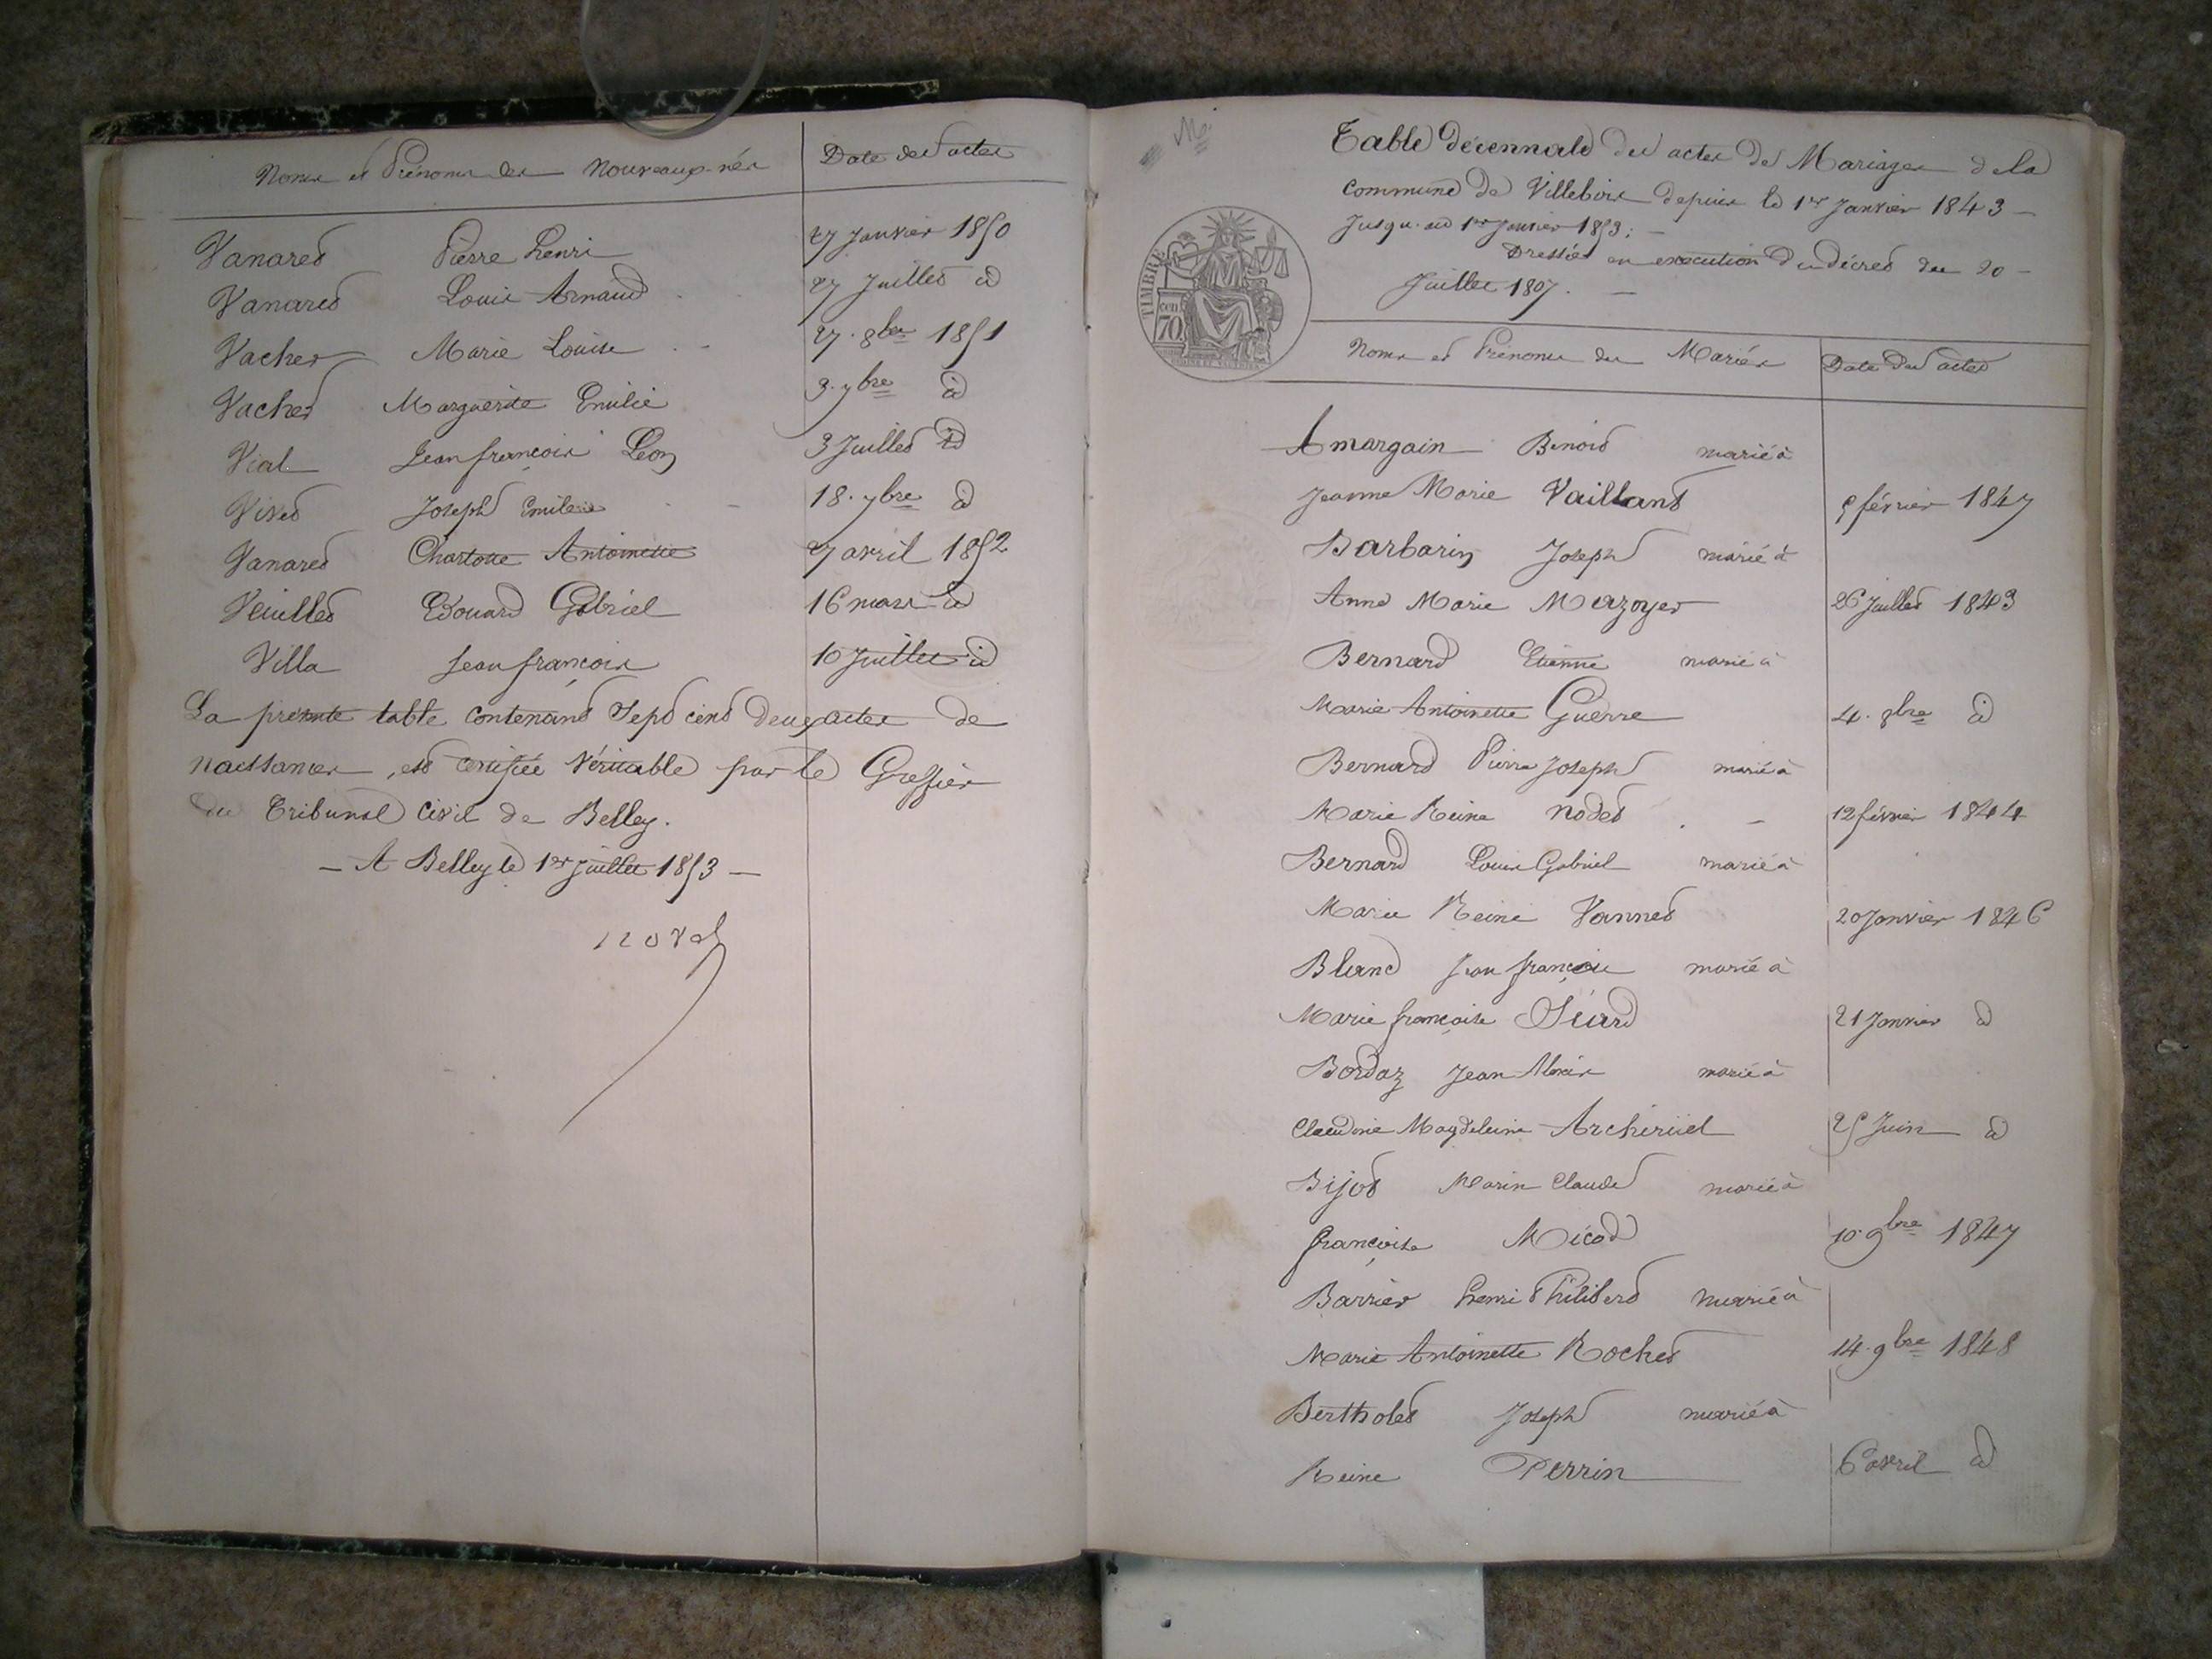 Noms et Prénoms des Nouveaux-nés
Date des actes
Vanaret Pierre Henri 27 Janvier 1850
Vanaret Louis Arnaud 27 Juillet id
Vacher Marie Louise 27. 8bre 1851
Vacher Marguerite Emilie 3. 7bre id
Vial Jean françois Léon 3 Juillet id
Vivet Joseph 18. 7bre id
Vanaret Charlotte Antoinette 27 avril 1852
Veuillet Edouard Gabriel 16 mars id
Villa Jean françois 10 Juillet id
La présente table contenant Sept cent deux actes de
naissances, est certifiée véritable par le Greffier
du Tribunal Civil de Belley.
– A Belley le 1er Juillet 1853 –
M.
Table décennale des actes de Mariages de la
commune de Villebois depuis le 1er Janvier 1843 –
Jusqu'au 1er Janvier 1853; –
Dressée en exécution du décret du 20 –
Juillet 1807. –
TIMBRE
70 cen
Noms et Prénoms des Mariés
Date des actes
Amargain Benoit marié à
Jeanne Marie Vaillant 5 février 1847
Barbarin Joseph marié à
Anne Marie Mazoyer 26 Juillet 1843
Bernard Etienne marié à
Marie Antoinette Guerre 4. 8bre id
Bernard Pierre Joseph marié à
Marie Reine Nodet 12 février 1844
Bernard Louis Gabriel marié à
Marie Reine Vannet 20 Janvier 1846
Bland Jean françois marié à
Marie françoise Siard 21 Janvier id
Bordaz Jean marié à
Claudine Magdeleine Archeriiel 25 Juin id
Bijot Marin Claude marié à
françoise Micod 10. 9bre 1847
Barrier Henri Philibert marié à
Marie Antoinette Rochet 14. 9bre 1848
Bertholet Joseph marié à
Reine Perrin 6 avril id